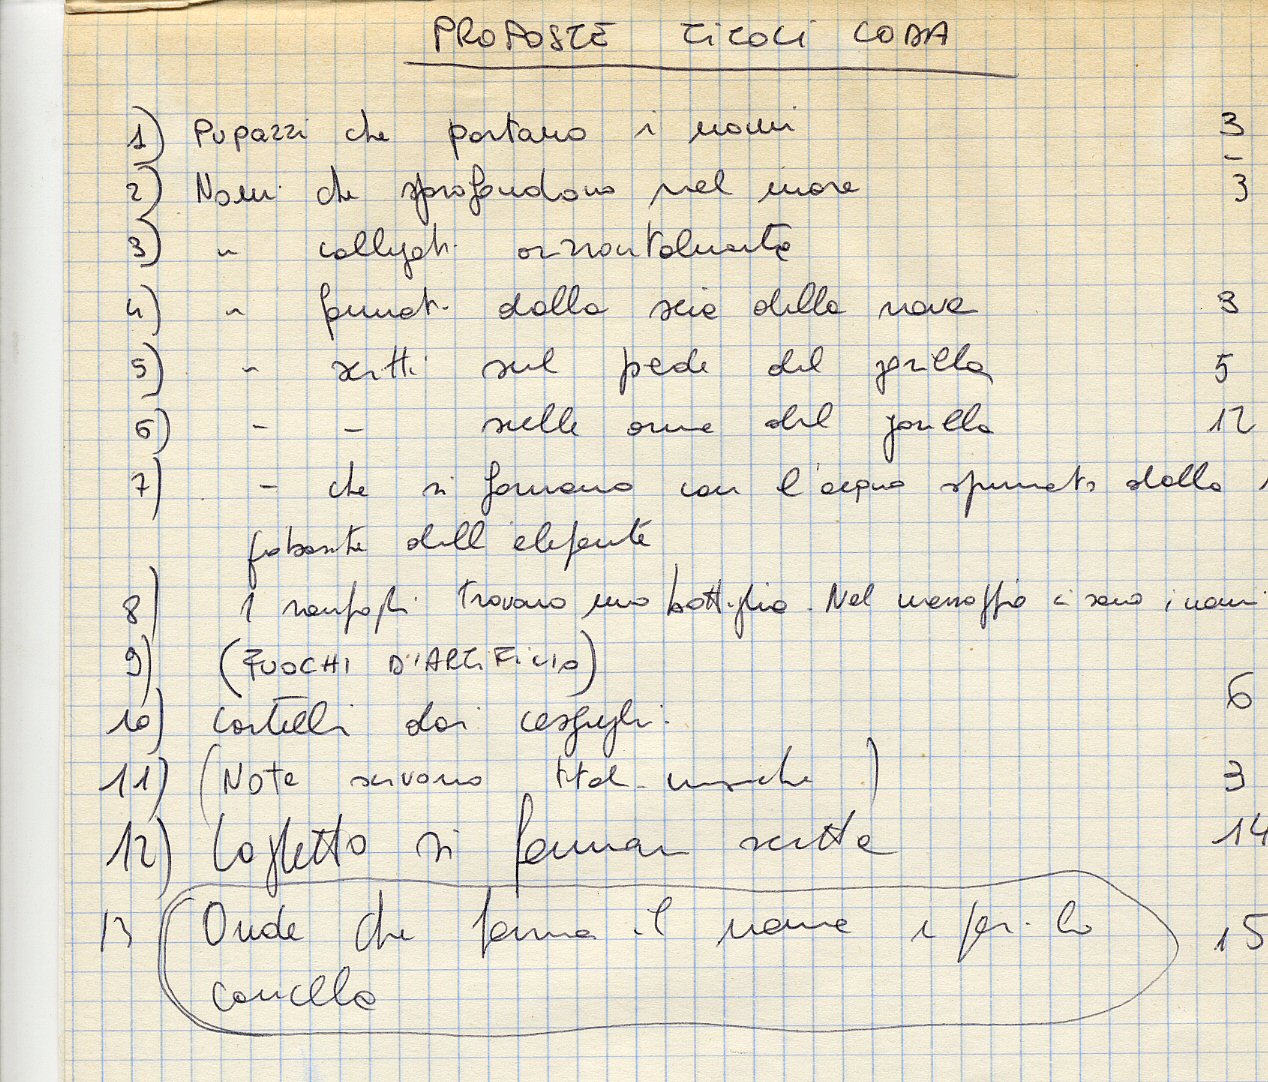 PROPOSTE TITOLI CODA
1) Pupazzi che portano i nomi 3
2) Nomi che sprofondono nel mare 3
3) " collegati orizzontalmente
4) " formati dalla scia della nave 3
5) " scritti sul piede del gorilla 5
6) " " sulle orme del gorilla 12
7) " che si formano con l'acqua spruzzata dalla
dell'elefante
8) I naufraghi trovano una bottiglia. Nel messaggio ci sono i nomi
9) (FUOCHI D'ARTIFICIO)
10) Cartelli dai cespugli. 6
11) (Note scrivono titoli musiche) 3
12) si forman scritte 14
13 Onde che forma il nome e poi lo 15
cancella